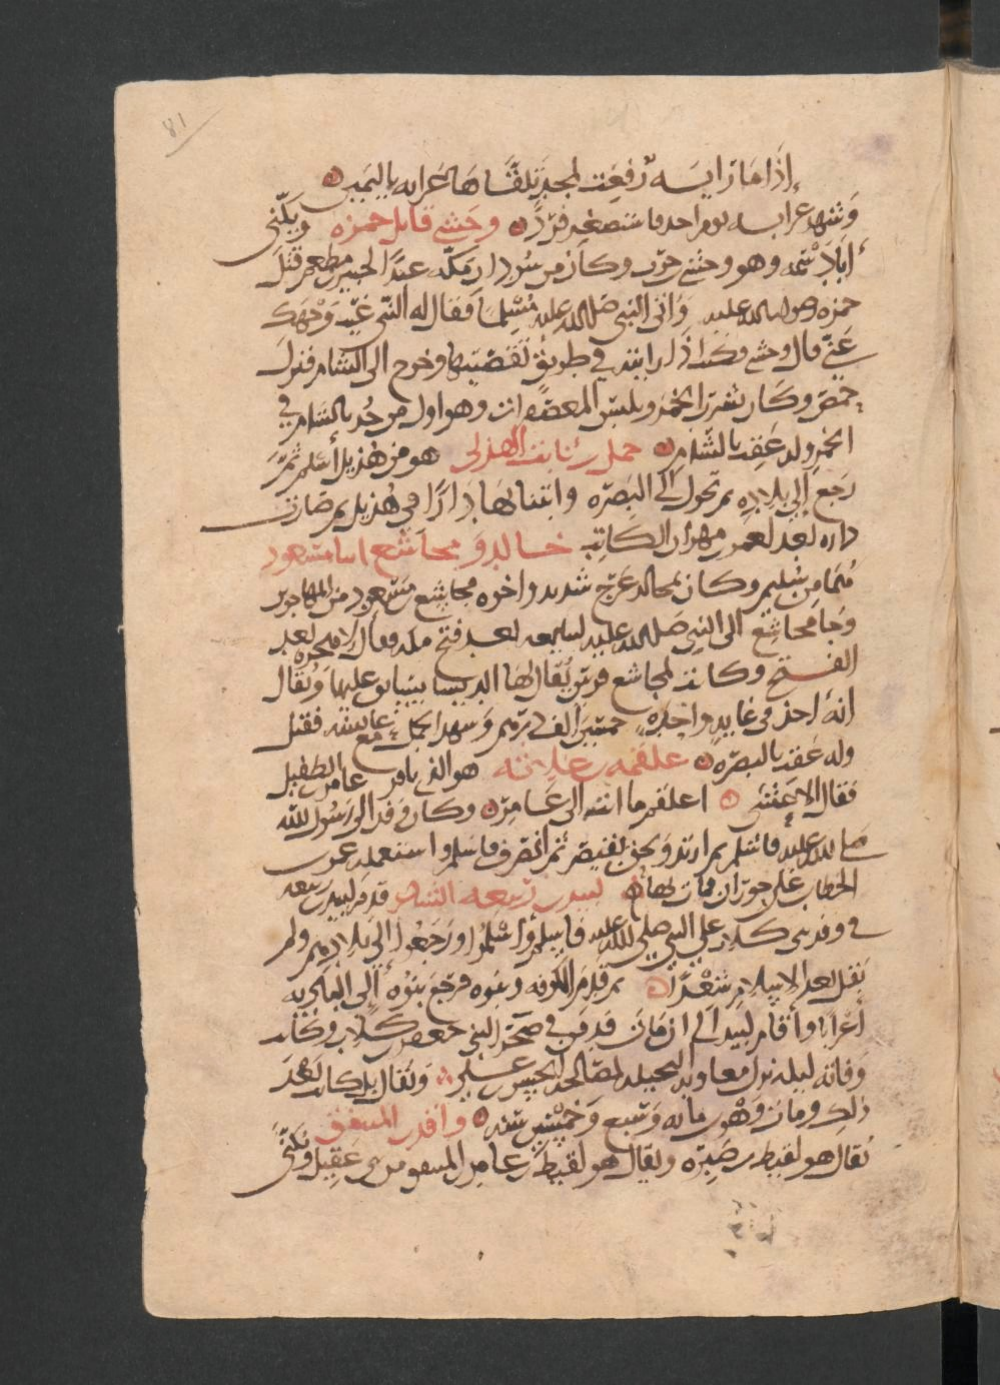 81
إذا ما راية رفعت لمجد تلقاها عرابة باليمين
وشهد عرابة يوم احد فاستصغر فرد وحشي قاتل حمزه ويكنى
أبا دسمه وهو وحشي بن حرب وكان من سودان مكه عبدا لجبير بن مطعم قتل
حمزه رضوان الله عليه وأتى النبي صلى الله عليه مسلما فقال له النبي غيب وجهك
عني قال وحشي فكنت اذا رايته في طريق تقصيتها وخرج الى الشام فنزل
حمص وكان يشرب الخمر ويلبس المعصفرات وهو اول من حد بالشام في
الخمر وله عقب بالشام حمل بن نابغة الهذلي هو من هذيل أسلم ثم
رجع إلى بلاده ثم تحول الى البصره وابتنا بها دارا في هذيل ثم صارت
داره بعد لعمر بن مهران الكاتب خالد ومجاشع ابنا مسعود
هما من سليم وكان بمجالد عرج شديد واخوه مجاشع بن مسعود من المهاجرين
وجا مجاشع الى النبي صلى الله عليه ليبايعه بعد فتح مكه فقال لا هجره بعد
الفتح وكانت لمجاشع فرس يقال لها الدبيسا يسابق عليها ويقال
انه أخذ في غاية واحدة خمسين الف درهم وشهد الجمل مع عايشه فقتل
وله عقب بالبصره علقمه بن علاثه هو الذي نافر عامر بن الطفيل
فقال الاعشى اعلقم ما انت الى عامر وكان وفد الى رسول الله
صلى الله عليه فاسلم ثم ارتد ولحق بقيصر ثم انصرف فاسلم واستعمله عمر بن
الخطاب على حوران فمات بها لبيد بن ربيعه الشاعر قدم لبيد بن ربيعه
في وفد بني كلاب على النبي صلى الله عليه فاسلم وأسلموا ورجعوا إلى بلادهم ولم
يقل بعد الاسلام شعرا ثم قدم الكوفه وبنوه فرجع بنوه إلى الباديه
أعرابا وأقام لبيد الى ان مات فدفن في صحرا بني جعفر بن كلاب وكانت
وفاته ليله نزل معاويه النخيله لمصالحه الحسن بن علي ويقال بل كانت بعد
ذلك ومات وهو ابن مايه وسبع وخمسين سنه وافد بن المنتفق
يقال هو لقيط بن صبره ويقال هو لقيط بن عامر بن المنتفق من بني عقيل ويكنى